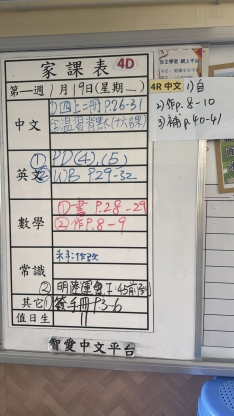 家課表 4D
第一週 1月19日(星期一)
中文
①四上二冊P.26-31
②溫習背默(十六課)
英文
① PD(4),(5)
② WB P.29-32
數學
①書P.28-29
②作P.8-9
常識
②明陸運會
其它
①簽手冊P.3-6
值日生
智愛中文平台
4R 中文 1)自
2)作p.8-10
3)補p.40-41